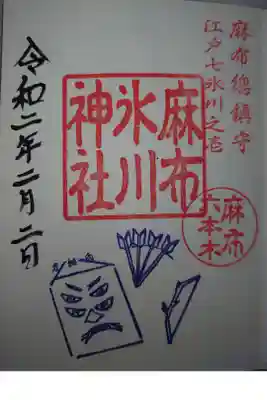 麻布總鎮守
江戸七氷川之壱
麻布
氷川
神社
麻布
六本木
令和二年二月二日